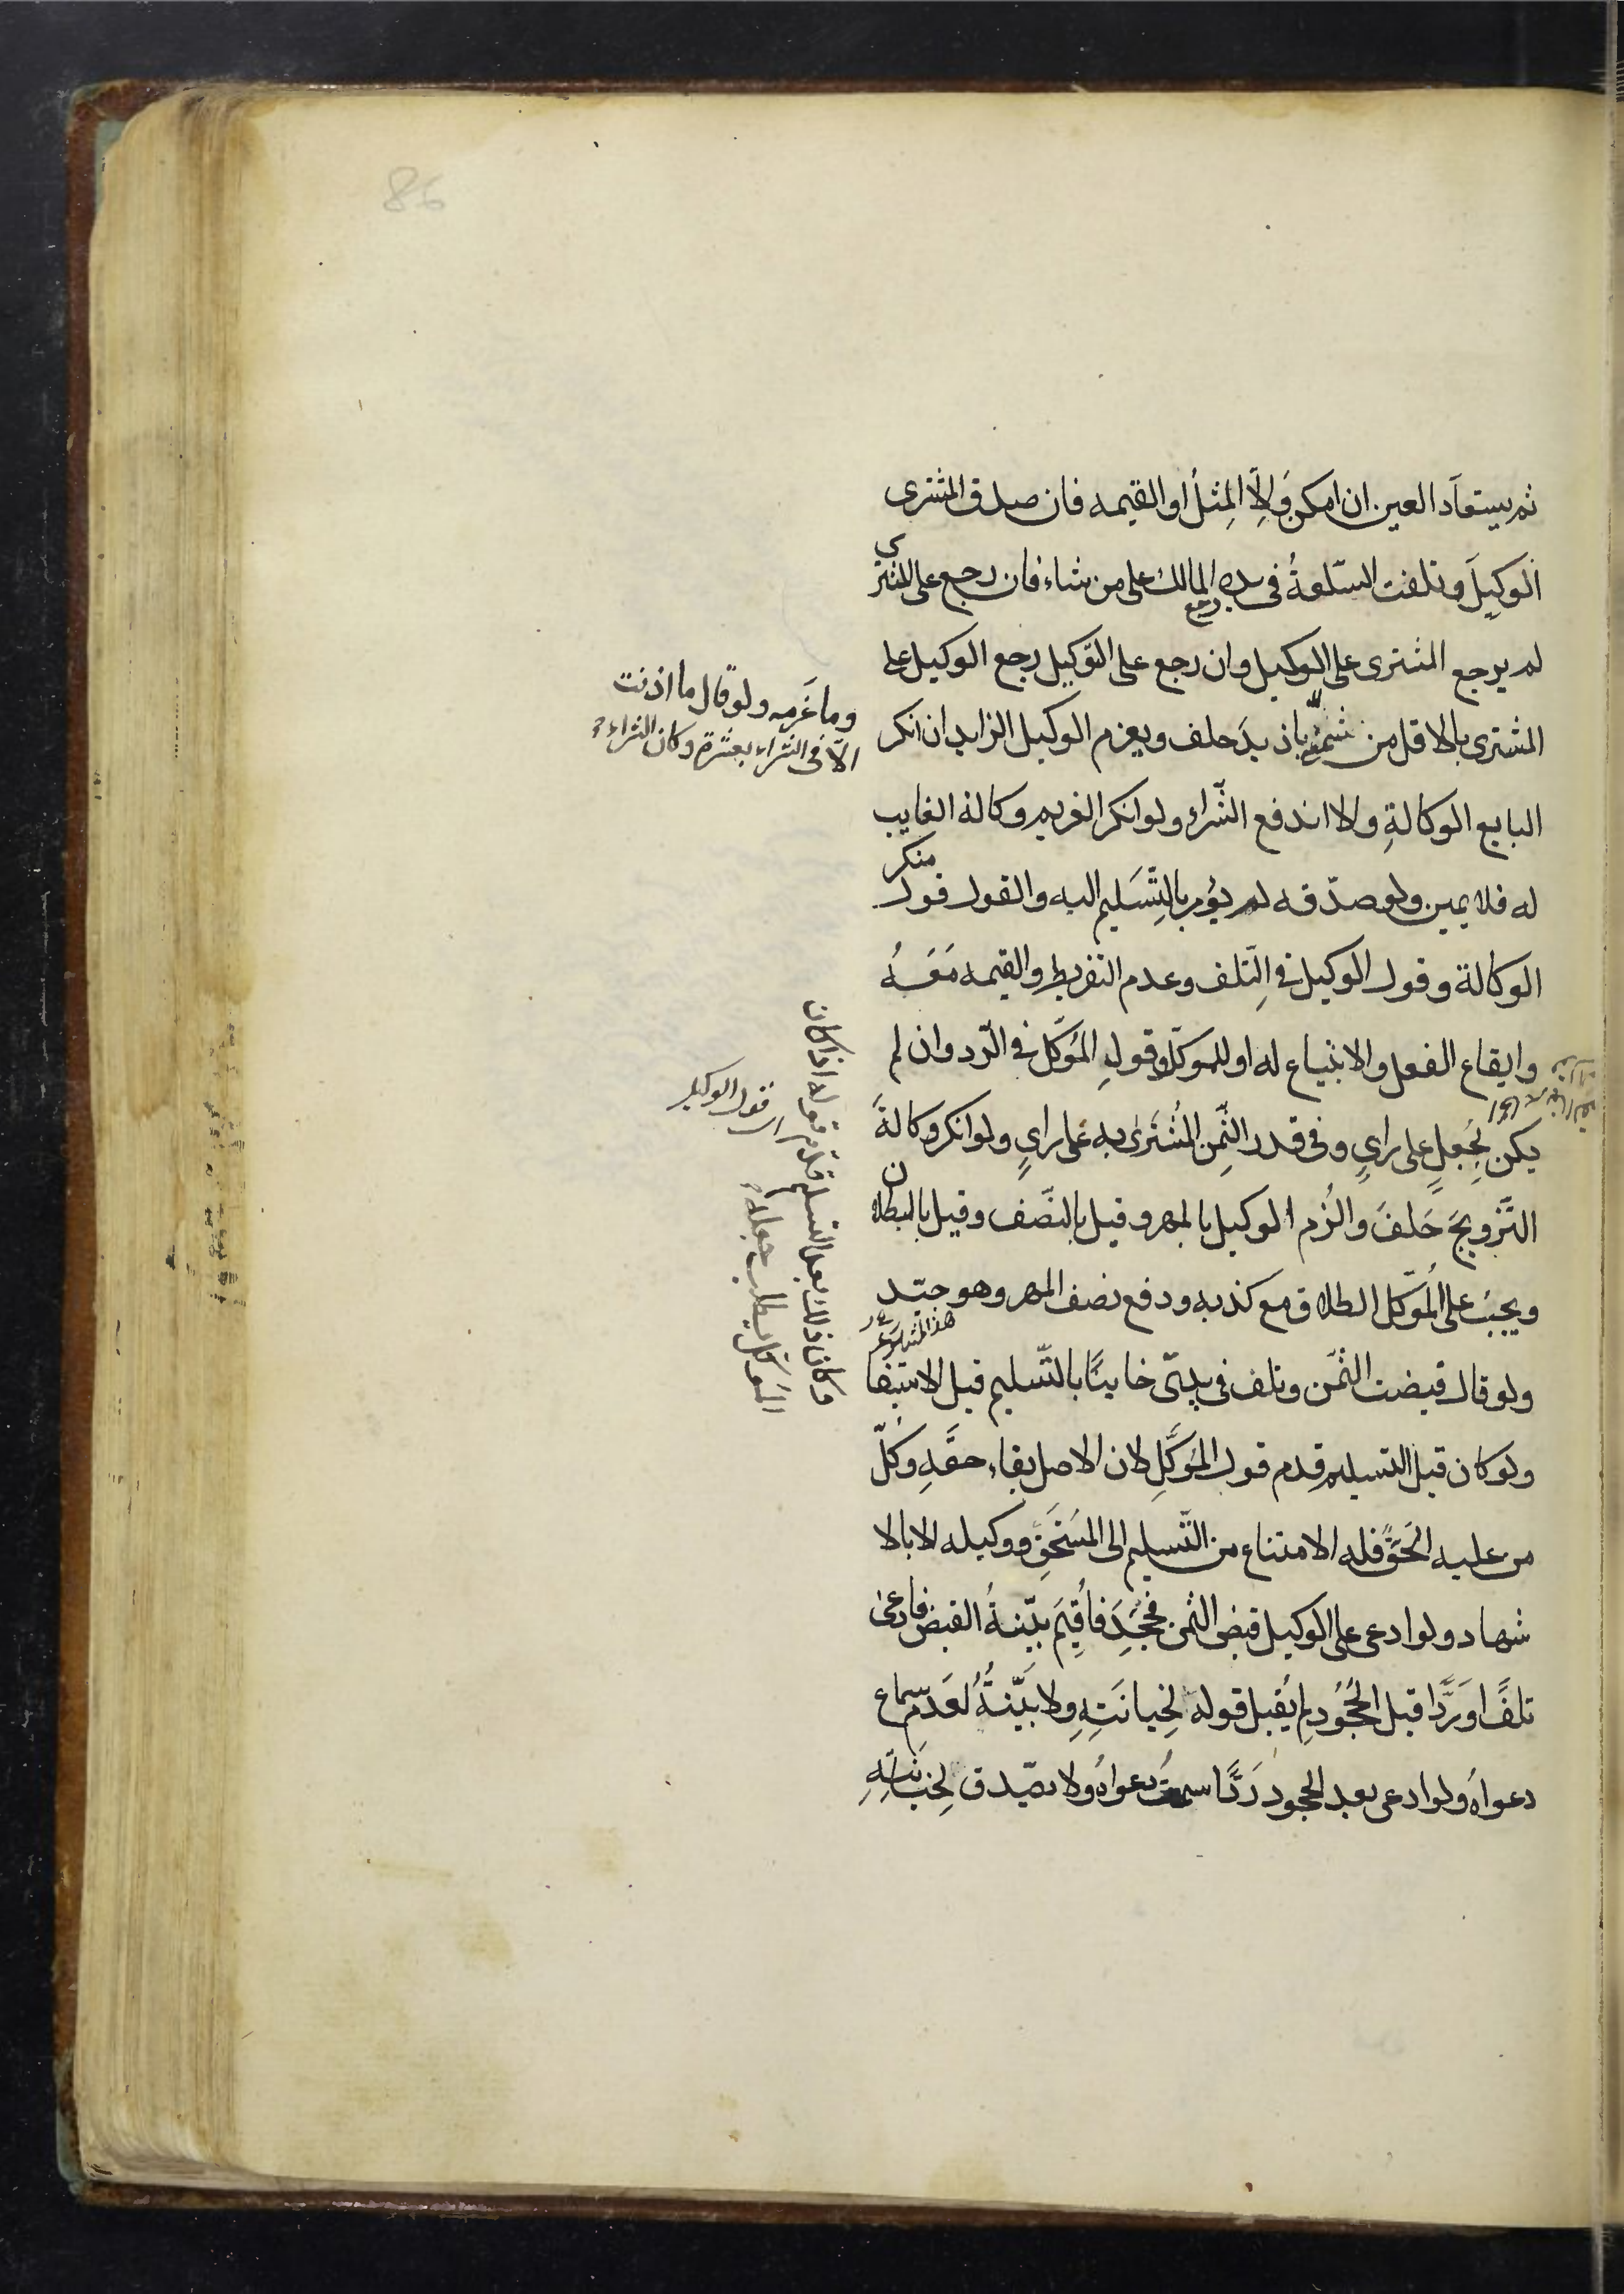 86
ثم يستعاد العين ان امكن وَالَّا المِثلُ او القيمه فان صدق المشترى
الوَكِيلَ وتلفت السّلعةُ فى يده رجع المالك على من شاء فان رجع على المشترى
لم يرجع المشترى على الوكيل وان رجع على الوَكِيل رجع الوكيل على
المشترى بالاقل من ثمنه
وما غَرِمه ولو قال ما اذنت
الّا فى الشراء بعشرة وكان الشراء
بازيدَ حلف ويغرم الوكيل الزايد ان انكر
البايع الوكالةِ والا اندفع الشّراء ولو انكر الغريم وكالة الغايب
له فلا يمين ولو صدّقه لم يؤمر بالتِّسَليم اليه والقول قول منكر
الوكالة وقول الوكيل فى التَلف وعدم التفريط والقيمه مَعَهُ
وايقاع الفعل والابتياع له او للموكّل وقولِ المُوَكّل فى الرّد وان لم
يكن بِجُعلٍ على رايٍ وفى قدر الثّمِن المُشتَرىٰ به على رايٍ ولو انكر وكالةَ
التَّزويجَ حَلفَ والزُم الوكيل بالمهر وقيل بالنّصف وقيل بالبطلان
ويجبَ على المُوَكّل الطلاق مع كذبه ودفع نصف المهر وهو جيّد
ولو قال قبضت الثمَن وتلف فى يدىّ
قول الوكيل
اذ كان
وكان ذلك بعد التسليم قدّم قوله
الموكّل يطلب جعله
خاينًا بالتّسليم قبل الاستيفا
ولو كان قبل التسليم قدم قول المُوَكَّلِ لان الاصل بقاء حقّهِ وكلّ
من عليه الحَقُّ فله الامتناع من التّسليم الى المسَتحَق ووكيله الا بالا
شهاد ولو ادعى على الوكيل قبض الثمن فجَحَدِ فاُقِيَم بيّنةُ القبض فادعىٰ
تلفًا اوَرَدًّا قبل الجُحُودِ لم يُقبل قوله لخِيانَتِهِ ولا بيّنةُ لعَدمِ سماع
دعواهُ ولو ادعى بعد الجحود رَدًّا سمعت دعواهُ ولا يصّدق لِخيانَتِهِ